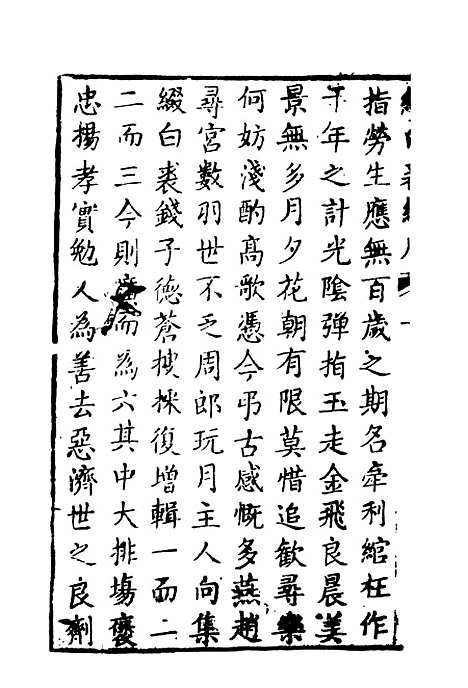 指勞生應無百歲之期名牽利綰枉作
千年之計光陰彈指玉走金飛良晨美
景無多月夕花朝有限莫惜追歡尋樂
何妨淺酌高歌憑今弔古感慨多燕趙
尋宮數羽世不乏周郎玩月主人向集
綴白裘錢子德蒼搜採復增輯一而二
二而三今則廣而為六其中大排塲褒
忠揚孝實勉人為善去惡濟世之良劑